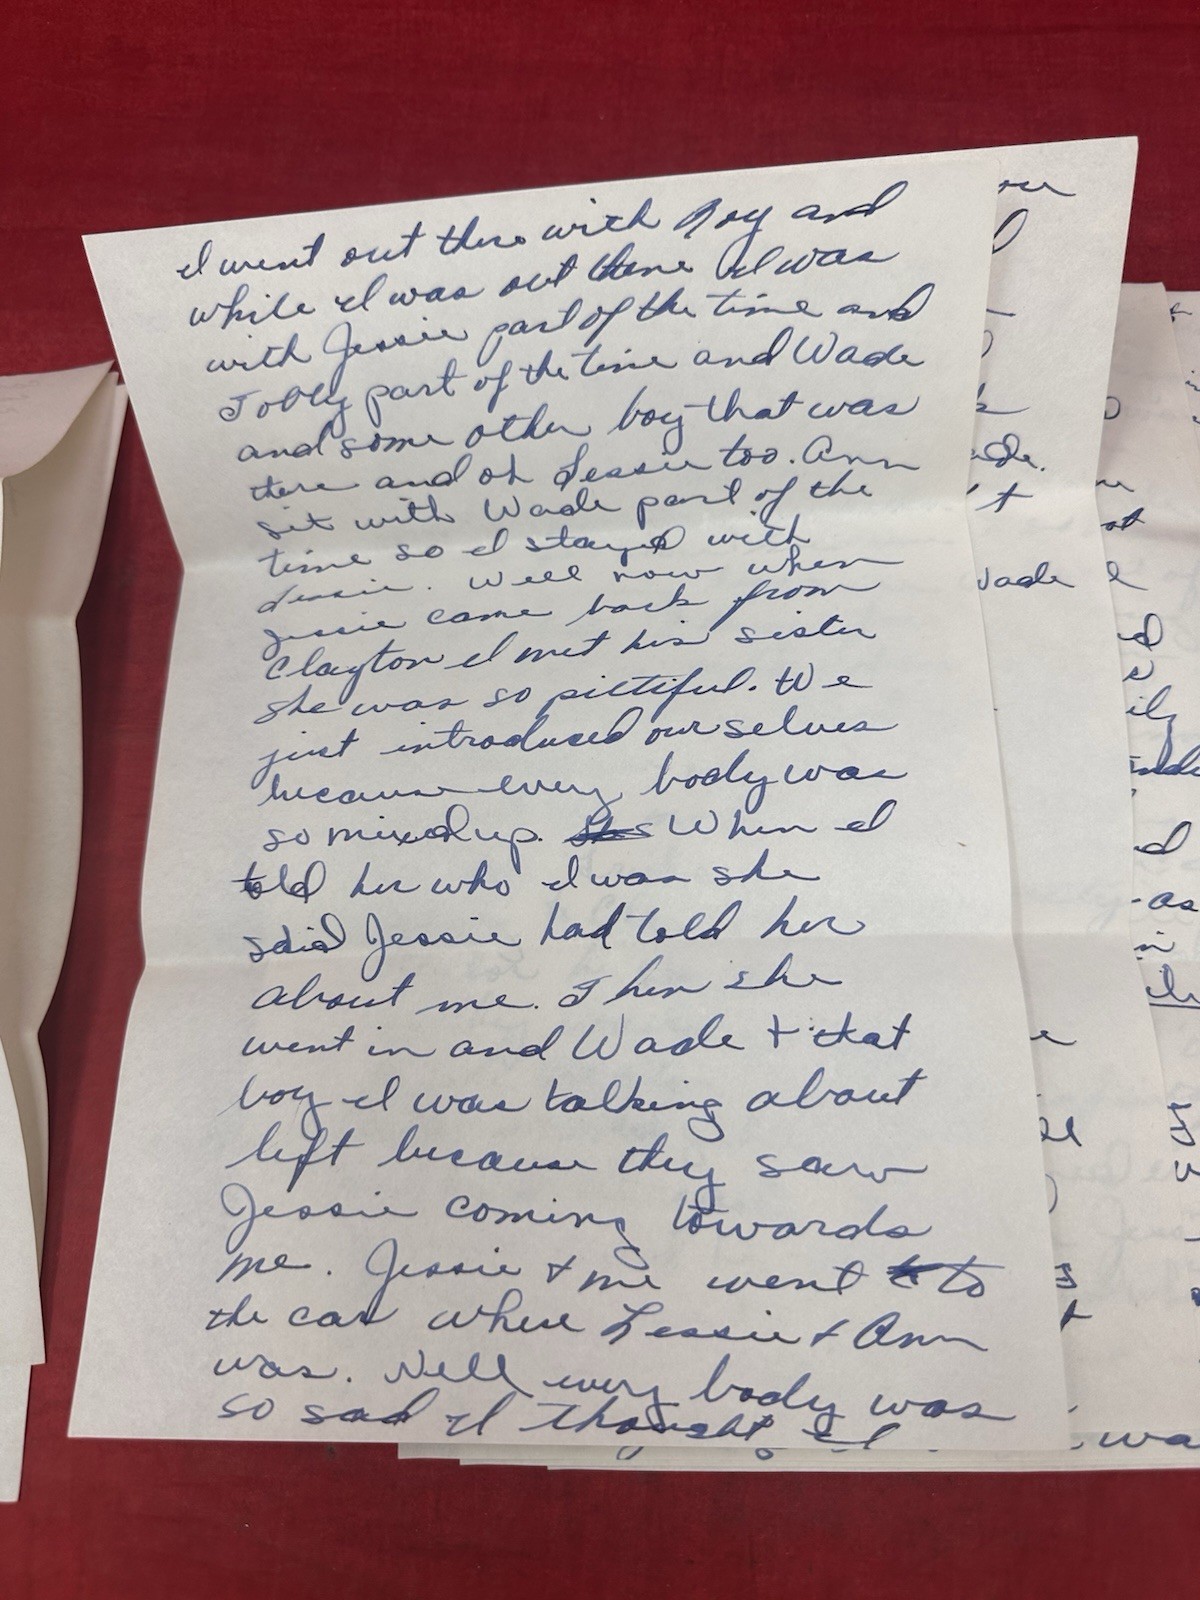 I went out there with Roy and
while I was out there I was
with Jessie part of the time and
Tobby part of the time and Wade
and some other boy that was
there and oh Lessie too. Ann
sit with Wade part of the
time so I stayed with
Lessie. Well now when
Jessie came back from
Clayton I met his sister
she was so pittiful. We
just introduced ourselves
because every body was
so mixed up. When I
told her who I was she
said Jessie had told her
about me. Then she
went in and Wade + that
boy I was talking about
left because they saw
Jessie coming towards
me. Jessie + me went to
the car where Lessie + Ann
was. Well every body was
so sad I thought I